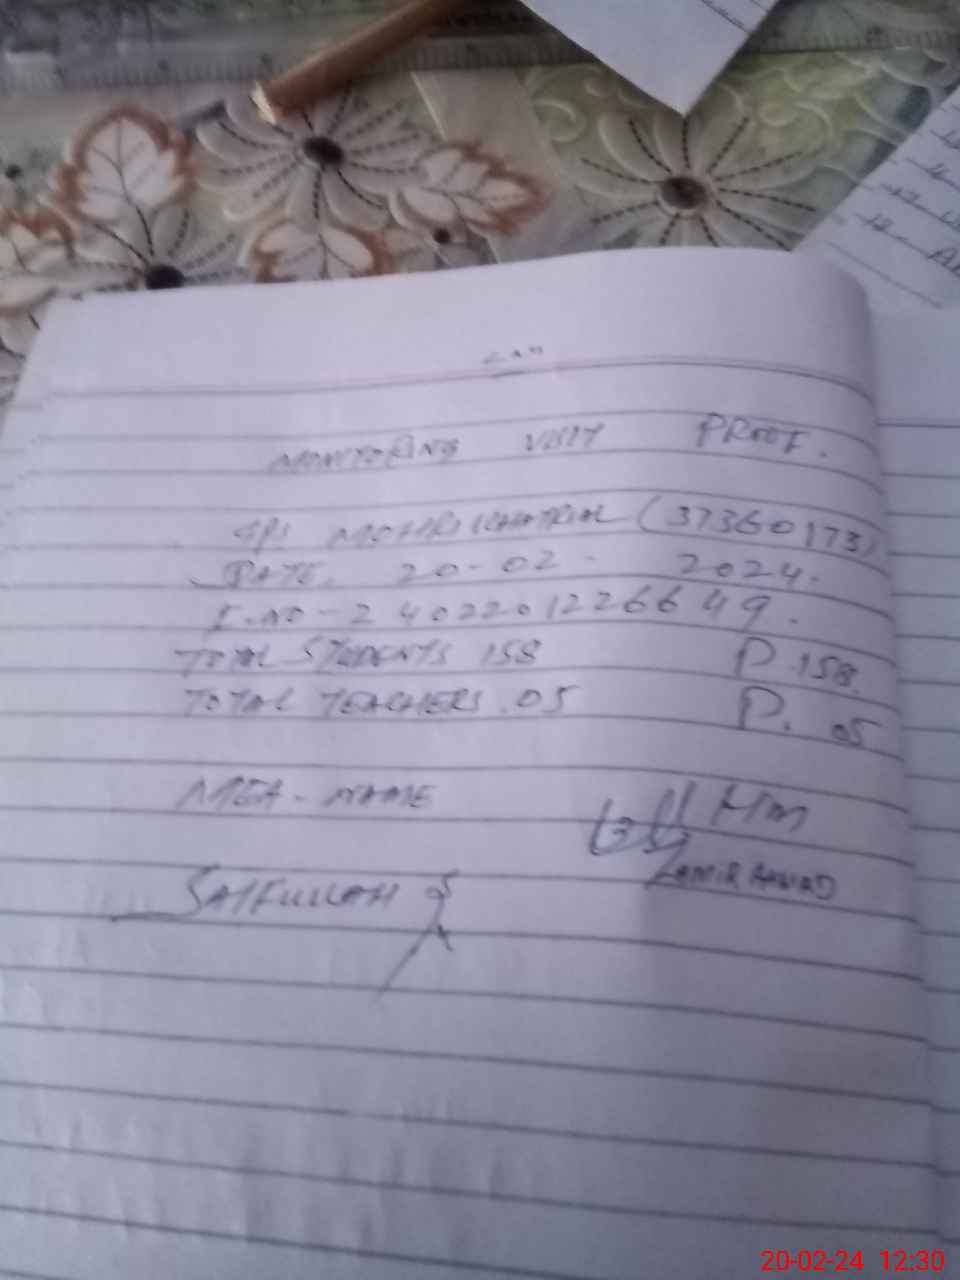 MONITORING VISIT PROOF.
GPS MOHRI KHATRIAL (37360173)
DATE. 20-02- 2024.
I.NO - 24022012266 49.
TOTAL STUDENTS 158 P. 158.
TOTAL TEACHERS. 05 P. 05
MEA - NAME HM
SAIFULLAH ZAMIR AWAD
20-02-24 12:30